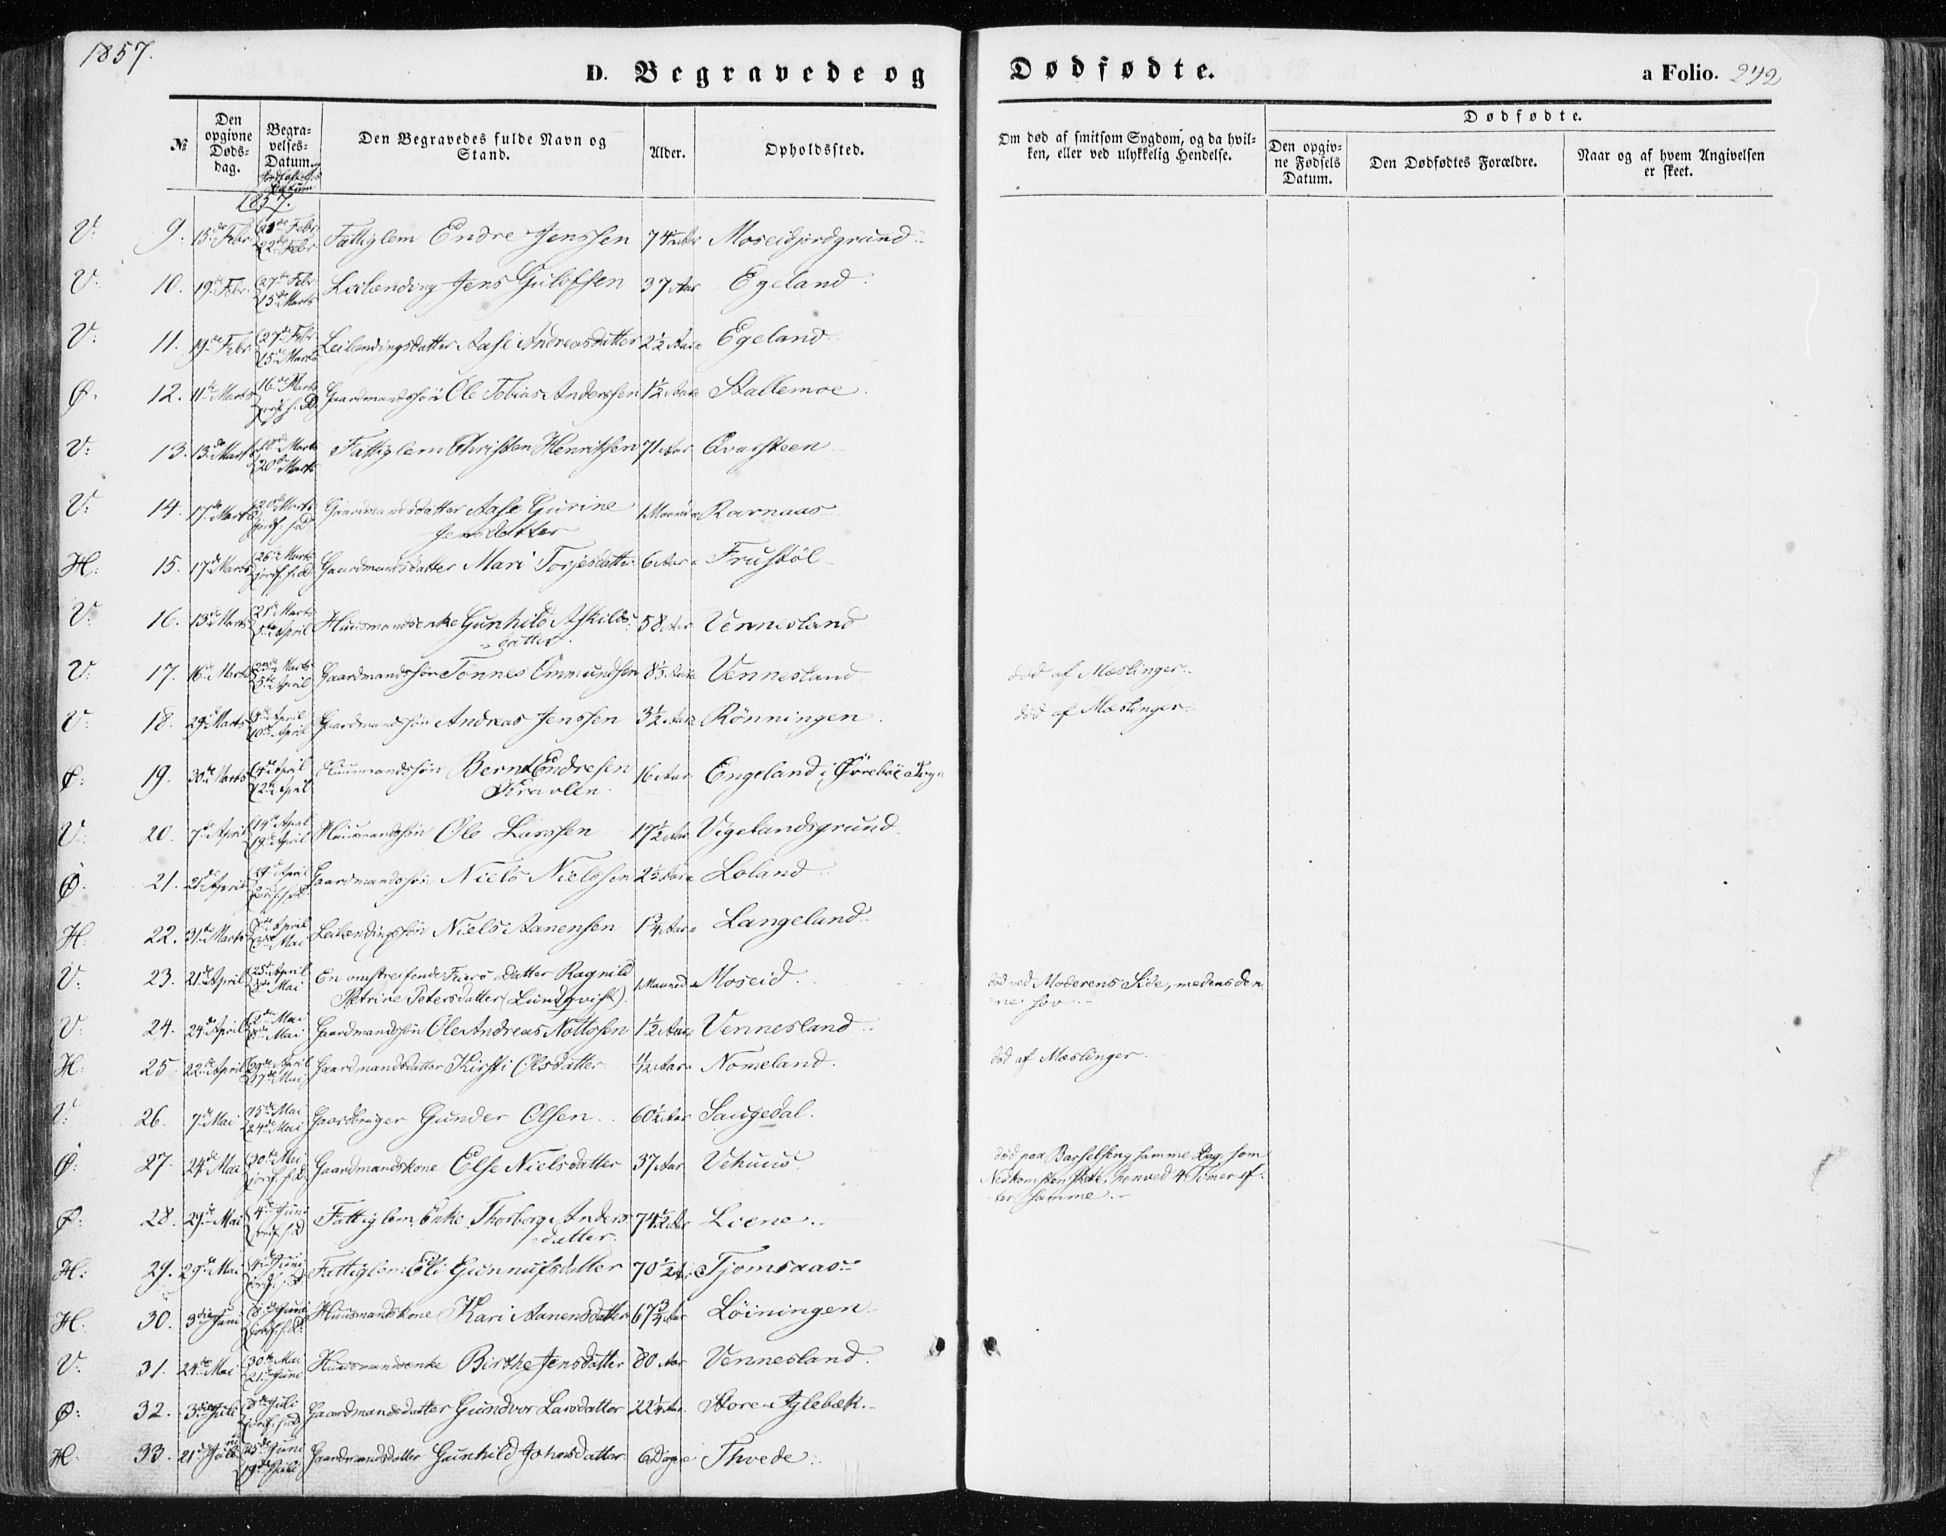 1857.
D. Begravede og
Dødfødte.
a Folio. 242
№
Den opgivne Døds-dag.
Begra-velses-Datum.
1857.
Den Begravedes fulde Navn og Stand.
Alder.
Opholdssted.
Om død af smitsom Sygdom, og da hvil-ken, eller ved ulykkelig Hendelse.
Dødfødte.
Den opgiv-ne Fødsels Datum.
Den Dødfødtes Forældre.
Naar og af hvem Angivelsen er skeet.
V: 9. 15de Febr 21de Febr 22de Febr Fattiglem Endre Jenssen 74½ Aar Moseidjordgrund
V: 10. 19de Febr. 27de Febr 15de Marts Leilending Jens Gulofsen 37 Aar Egeland
V: 11. 19de Febr 27de Febr 15de Marts Leilendingsdatter Aase Andreasdatter 2½ Aar Egeland
Ø: 12. 11te Marts 16de Marts Gaardmandssön Ole Tobias Anderssen 1½ Aar Stallemoe
V: 13. 13de Marts 20de Marts Fattiglem Christen Henriksen 71 Aar Qvarsteen
V: 14. 17de Marts 20de Marts Gaardmandsdatter Aase Gurine Jensdatter 1 Maaned Ravnaas
H: 15. 17de Marts 26de Marts Gaardmandsdatter Mari Torjesdatter 6 Aar Frustöl
V: 16. 13de Marts 21de Marts 5te April Huusmandsenke Gunhild Askilds-datter 58 Aar Vennesland
V: 17. 16de Marts 23de Marts 5te April Gaardmandssön Tönnes Ommundsen 8½ Aar Vennesland død af Mæslinger
V: 18. 29de Marts 10de April Gaardmandssön Andreas Jenssen 3½ Aar Rönningen død af Mæslinger
Ø: 19. 30te Marts April 12te April Huusmandssön Bernt Endresen 16 Aar Engeland i Øvrebøe Sogn
V: 20. 7de April 14de April 19de April Huusmandssön Ole Larssen 17½ Aar Vigelandsgrund
Ø: 21. April 29de April Gaardmandssön Niels Nielssen 2½ Aar Loland
H: 22. 31te Marts April 3die Mai Leilendingssön Niels Aanensen 1¾ Aar Langeland
V: 23. 21de April 25de April Mai En omstreifende Fiers Datter Ragnild Petrine Petersdatter (Lundqvist) 1 Maaned Moseid. død ved Moderens Side, medens den-ne sov.
V: 24. 24de April 2de Mai Mai Gaardmandssön Ole Andreas Nottossen 1½ Aar Vennesland
H: 25 22de April 29de April 17de Mai Gaardmandsdatter Kirsti Olsdatter ½ Aar Nomeland. død af Mæslinger.
V: 26. 7de Mai 15de Mai 24de Mai Gaardbruger Gunder Olsen 60½ Aar Saugedal.
Ø: 27. 24de Mai 30te Mai Gaardmandskone Else Nielsdatter 37 Aar Vehuus død paa Barselseng samme Dag, som Nedkomsten skete, henved 4 Timer ef-ter samme.
Ø: 28. 29de Mai 4de Juni Fattiglem, Enke Thorborg Anders-datter 74½ Aar Liene
H: 29. 29de Mai 4de Juni Fattiglem Eli Gunnufsdatter 70½ Aar Tjomsaas
H: 30. 3die Juni 8de Juni Huusmandskone Kari Aanensdatter 67¾ Aar Löiningen
V: 31. 24de Mai 30te Mai 21de Juni Huusmandsenke Birthe Jensdatter 80 Aar Vennesland.
Ø: 32. 3die Juli Juli Gaardmandsdatter Gundvor Larsdatter 22¼ Aar Store Iglebæk
H: 33. 21de 25de Juni 19de Juli Gaardmandsdatter Gunhild Johnsdatter 6 Dage Thvede